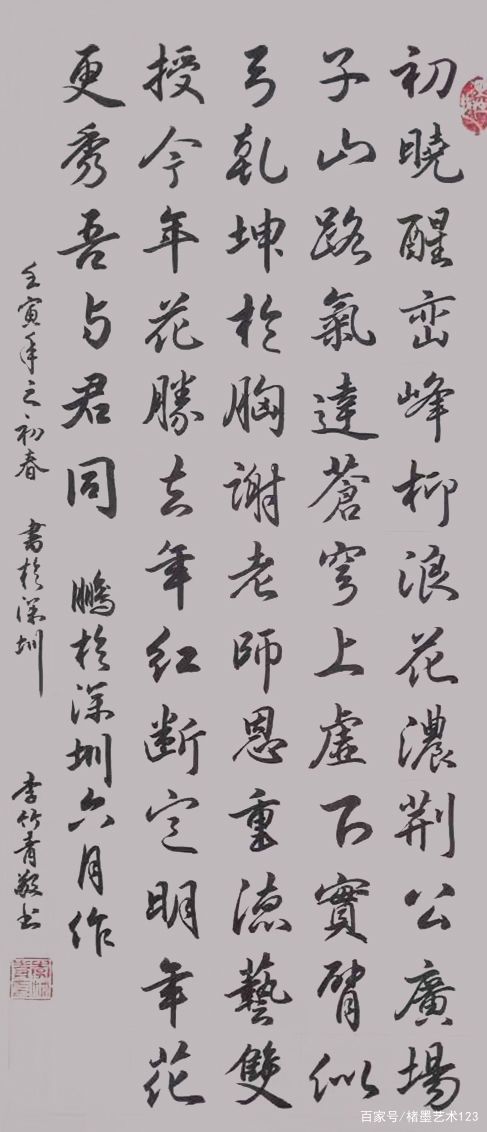 初曉醒巒峰柳浪花濃荊公廣場
子山路氣達蒼穹上虛下實臂似
弓乾坤於胸謝老師恩重德藝雙
授今年花勝去年紅斷定明年花
更秀吾與君同
鵬於深圳六月作
壬寅年之初春 書於深圳
李竹青敬書
百家号/楮墨艺术123